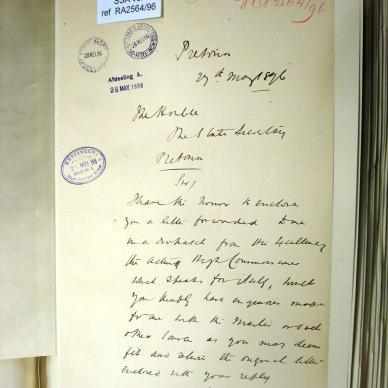 ref RA2564/96
RA2564/96
Afdeeling A.
28 MAY. 1896
Pretoria
27th May 1896
The Honble
The State Secretary
Pretoria
Sir,
I have the honor to enclose
you a letter forwarded to me
in a despatch from His Excellency
the Acting High Commissioner
which speaks for itself, would
you kindly have enquiries made
for me with the Master or such
other source as you may deem
fit and return the original letter
enclosed with your reply